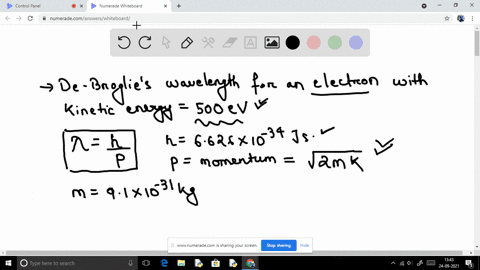 Control Panel
Numerade Whiteboard
numerade.com/answers/whiteboard/
→ De-Broglie's wavelength for an electron with
Kinetic energy = 500 eV
λ = h/P
h = 6.626 × 10^-34 Js.
P = momentum = √2mK
m = 9.1 × 10^-31 kg
www.numerade.com is sharing your screen. Stop sharing Hide
Type here to search
ENG
15:43
24-09-2021